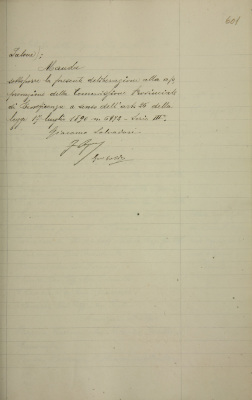 601
fatevi;
Manda
sottoporre la presente deliberazione alla ap=
provazione della Commissione Provinciale
di Beneficenza a senso dell'art. 36 della
legge 17 luglio 1890 n. 6972 - Serie IIIª.
Giacomo Salvadori